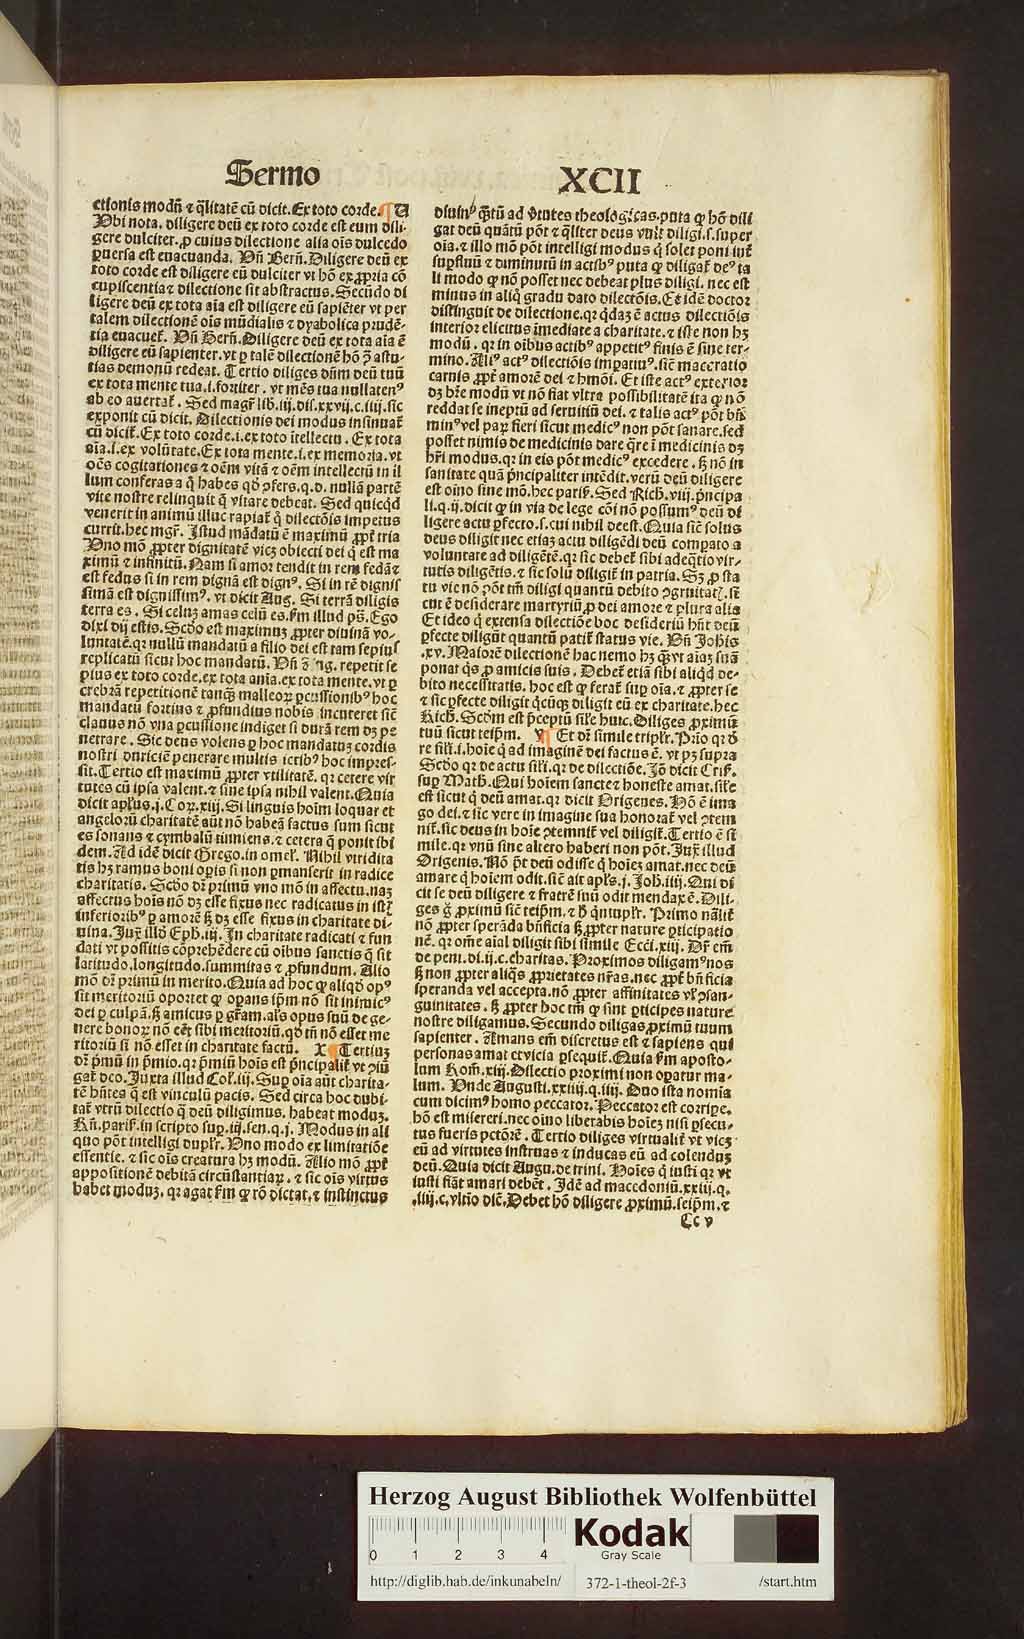 Sermo XCII
ctionis modū ⁊ q̄litatē cū dicit. Ex toto corde. ¶ U
Ubi nota. diligere deū ex toto corde est eum dili-
gere dulciter. ꝓ cuius dilectione alia oīs dulcedo
ꝑuersa est euacuanda. Uñ Berñ. Diligere deū ex
toto corde est diligere eū dulciter vt hō ex ꝓpria cō
cupiscentia ⁊ dilectione sit abstractus. Secūdo di
ligere deū ex tota aīa est diligere eū sapiēter vt per
talem dilectionē oīs mūdialis ⁊ dyabolica prudē-
tia euacuet᷑. Uñ Berñ. Diligere deū ex tota aīa ē
diligere eū sapienter. vt ꝑ talē dilectionē hō ꝓ astu-
tias demonū redeat. Tertio diliges dn̄m deū tuū
ex tota mente tua. i. fortiter. vt mēs tua nullatenꝰ
ab eo auertat᷑. Sed magr̄ lib. iij. dis. xxvij. c. iiij. sic
exponit cū dicit. Dilectionis dei modus insinuat᷑
cū dicit᷑. Ex toto corde. i. ex toto ītellectu. Ex tota
aīa. i. ex volūtate. Ex tota mente. i. ex memoria. vt
oēs cogitationes ⁊ oēm vitā ⁊ oēm intellectū in il
lum conferas a q̄ habes qd̄ ꝯfers. q. d. nullā partē
vite nostre relinquit q̄ vitare debeat. Sed quicqd̄
venerit in animū illuc rapiat᷑ q̄ dilectōis impetus
currit. hec mgr̄. Istud mādatū ē maximū ꝓpt᷑ tria
Uno mō ꝓpter dignitatē vicꝫ obiecti dei q̄ est ma
ximū ⁊ infinitū. Nam si amor tendit in rem fedā ⁊
est fedus si in rem dignā est dignꝰ. Si in rē dignis
simā est dignissimꝰ. vt dicit Aug. Si terrā diligis
terra es. Si celuꝫ amas celū es. ẜm illud pꝰ. Ego
dixi dij estis. Scd̄o est maximuꝫ ꝓpter diuinā vo-
luntatē. qꝛ nullū mandatū a filio dei est tam sepius
replicatū sicut hoc mandatū. repetit se
pius ex toto corde. ex tota anīa. ex tota mente. vt ꝑ
crebrā repetitionē tanqꝫ malleoꝝ ꝑcussionibꝰ hoc
mandatū fortius ⁊ ꝓfundius nobis incuteret sic̄
clauus nō vna ꝑcussione indiget si durā rem dꝫ pe
netrare. Sic deus volens ꝑ hoc mandatuꝫ cordis
nostri duriciē penerare multis ictibꝰ hoc impres-
sit. Tertio est maximū ꝓpter vtilitatē. qꝛ cetere vir
tutes cū ipsa valent. ⁊ sine ipsa nihil valent. Quia
dicit apl̄us. j. Coꝝ. xiij. Si linguis hoīm loquar et
angeloꝝ charitatē aūt nō habeā factus sum sicut
es sonans ⁊ cymbalū tinniens. ⁊ cetera q̄ ponit ibi
dem. Ad idē dicit Grego. in omel᷑. Nihil viridita
tis hꝫ ramus boni oꝑis si non ꝑmanserit in radice
charitatis. Scd̄o dr̄ primū vno mō in affectu. naꝫ
affectus hoīs nō dꝫ esse fixus nec radicatus in istꝭ
inferioribꝰ ꝑ amorē sꝫ dꝫ esse fixus in charitate di-
uina. Juxͭ illd̄ Eph. iij. In charitate radicati ⁊ fun
dati vt possitis cōprehēdere cū oībus sanctis q̄ sit
latitudo. longitudo. summitas ⁊ ꝓfundum. Alio
mō dr̄ primū in merito. Quia ad hoc ꝙ aliqd̄ opꝰ
sit meritoriū oportet ꝙ oꝑans ip̄m nō sit inimicꝰ
dei ꝑ culpā. sꝫ amicus ꝑ gr̄am. al̄s opus suū de ge-
nere bonoꝝ nō eēt sibi meritoriū. qd̄ tn̄ nō esset me
ritoriū si nō esset in charitate factū. X ¶ Tertiuꝫ
dr̄ pͥmū in pͥmio. qꝛ pͥmiū hoīs est pͥncipalit᷑ vt ꝯiū
gat᷑ deo. Juxta illud Col᷑. iij. Suꝑ oīa aūt charita-
tē hn̄tes q̄ est vinculū pacis. Sed circa hoc dubi-
tat᷑ vtrū dilectio q̄ deū diligimus. habeat moduꝫ.
Rñ. paris̄. in scripto suꝑ. iij. sen. q. j. Modus in ali
quo pōt intelligi dupl᷑r. Uno modo ex limitatiōe
essentie. ⁊ sic oīs creatura hꝫ modū. Alio mō ꝓpt᷑
appositionē debitā circūstantiaꝝ. ⁊ sic oīs virtus
habet moduꝫ. qꝛ agat ẜm ꝙ rō dictat. ⁊ instinctus
diuinꝰ qꝫtū ad v̄tutes theologicas. puta ꝙ hō dili
gat deū quātū pōt ⁊ q̄liter deus vult diligi. s. super
oīa. ⁊ illo mō pōt intelligi modus q̄ solet poni int᷑
suꝑfluū ⁊ diminutū in actibꝰ puta ꝙ diligat᷑ deꝰ ta
li modo ꝙ nō posset nec debeat plus diligi. nec est
minus in aliq̄ gradu dato dilectōis. Et idē doctor
distinguit de dilectione. qꝛ q̄daꝫ ē actus dilectiōis
interior elicitus īmediate a charitate. ⁊ iste non hꝫ
modū. qꝛ in oībus actibꝰ appetitꝰ finis ē sine ter-
mino. Aliꝰ actꝰ dilectiōis imꝑatiuꝰ. sic̄ maceratio
carnis ꝓpt᷑ amorē dei ⁊ hmōi. Et iste actꝰ exterior
dꝫ hr̄e modū vt nō fiat vltra possibilitatē ita ꝙ nō
reddat se ineptū ad seruitiū dei. ⁊ talis actꝰ pōt
minꝰ vel paꝝ fieri sicut medicꝰ non pōt sanare. sed
posset nimis de medicinis dare q̄re ī medicinis dꝫ
hr̄i modus. qꝛ in eis pōt medicꝰ excedere. sꝫ nō in
sanitate quā pͥncipaliter intēdit. verū deū diligere
est oīno sine mō. hec paris̄. Sed Rich. viij. pͥncipa
li. q. ij. dicit ꝙ in via de lege cōi nō possumꝰ deū di
ligere actu ꝑfecto. s. cui nihil deest. Quia sic̄ solus
deus diligit nec etiaꝫ actu diligēdi deū compato a
voluntate ad diligētē. qꝛ sic debet᷑ sibi adeq̄tio vir-
tutis diligētis. ⁊ sic solū diligit᷑ in patria. Sꝫ ꝓ sta
tu vie nō pōt tm̄ diligi quantū debito ꝯgruitatꝭ. sic̄
cut ē desiderare martyriū ꝓ dei amore ⁊ plura alia
Et ideo q̄ extensa dilectiōe hoc desideriū hn̄t deū
ꝑfecte diligūt quantū patit᷑ status vie. Uñ Johīs
.xv. Maiorē dilectionē hac nemo hꝫ qꝫ vt aīaꝫ suā
ponat qͥs ꝓ amicis suis. Debet᷑ etiā sibi aliqd̄ de-
bito necessitatis. hoc est ꝙ ferat᷑ suꝑ oīa. ⁊ ꝓpter se
⁊ sic ꝑfecte diligit qͥcūqꝫ diligit eū ex charitate. hec
Rich. Scd̄m est p̄ceptū sil̄e huic. Diliges ꝓximū
tuū sicut teip̄m. Y ¶ Et dr̄ simile tripl᷑r. Pͥmo qꝛ d̄
re sil᷑i. i. hoīe q̄ ad imaginē dei factus ē. vt pꝫ supra
Scd̄o qꝛ de actu sil᷑i. qꝛ de dilectiōe. Jō dicit Cris̄.
suꝑ Math. Qui hoīem sancte ⁊ honeste amat. sil̄e
est sicut q̄ deū amat. qꝛ dicit Origenes. Hō ē ima
go dei. ⁊ sic vere in imagine sua honorat᷑ vel ꝯtem
nit᷑. sic deus in hoīe ꝯtemnit᷑ vel diligit᷑. Tertio ē si
mile. qꝛ vnū sine altero haberi non pōt. Juxͭ illud
Origenis. Nō pōt deū odisse q̄ hoīeꝫ amat. nec deū
amare q̄ hoīem odit. sic̄ ait apl̄s. j. Joh. iiij. Qui di
cit se deū diligere ⁊ fratrē suū odit mendax ē. Dili-
ges ḡ ꝓximū sic̄ teip̄m. ⁊ h̄ qͥntupl᷑r. Primo nāl᷑it᷑
nō ꝓpter sperāda bn̄ficia sꝫ ꝓpter nature ꝑticipatio
nē. qꝛ om̄e aīal diligit sibi simile Ecci. xiij. Dr̄ em̄
de peni. di. ij. c. charitas. Proximos diligamꝰ nos
sꝫ non ꝓpter aliqͣs ꝓprietates nr̄as. nec ꝓpt᷑ bn̄ficia
speranda vel accepta. nō ꝓpter affinitates vl᷑ ꝯsan-
guinitates. sꝫ ꝓpter hoc tm̄ ꝙ sint ꝑticipes nature
nostre diligamus. Secundo diligas ꝓximū tuum
sapienter. Amans em̄ discretus est ⁊ sapiens qui
personas amat et vicia ꝑsequit᷑. Quia ẜm aposto-
lum Rom̄. xiij. Dilectio proximi non oꝑatur ma-
lum. Unde Augusti. xxiiij. q. iiij. Duo ista nomīa
cum dicimꝰ homo peccator. Peccator est corripe.
hō est misereri. nec oīno liberabis hoīeꝫ nisi ꝑsecu-
tus fueris pctōrē. Tertio diliges virtualit᷑ vt vicꝫ
eū ad virtutes instruas ⁊ inducas eū ad colenduꝫ
deū. Quia dicit Augu. de trini. Hoīes q̄ iusti qꝛ vt
iusti fiāt amari debēt. Idē ad macedoniū. xxiij. q.
.iiij. c. vltīo dic̄. Debet hō diligere ꝓximū. seip̄m. ⁊
Cc v
Herzog August Bibliothek Wolfenbüttel
0 1 2 3 4
Kodak
Gray Scale
http://diglib.hab.de/inkunabeln/ 372-1-theol-2f-3 /start.htm